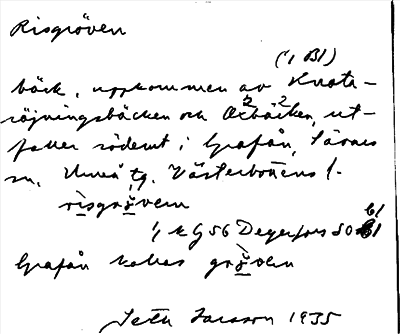 Risgröven
(', Bl)
bäck, uppkommen av Knote-
röjningsbäcken och Oxbäcken, ut-
faller söderut i Grafån, Sävars
sn, Umeå tg. Västerbottens l.
risgröven
1/2 k G 56 Degerfors SO 61
Grafån kallas gröven
Seth Larsson 1935